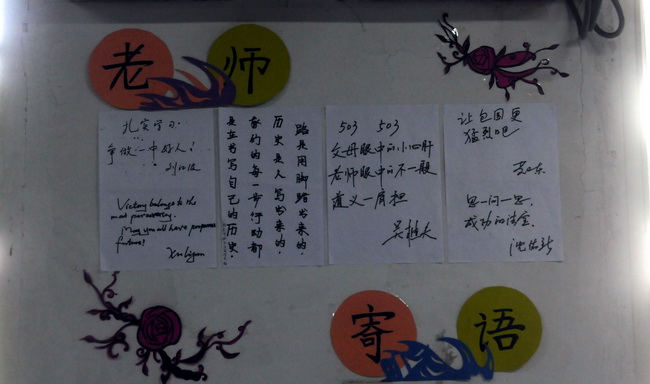 老师
扎实学习
争做一中好人!
Victory belongs to the
most persevering.
May you all have prosperous
future!
路是用脚踏出来的,
历史是人写出来的,
的每一步行动都
是在书写自己的历史。
503 503
父母眼中的小心肝
老师眼中的不一般
道义一肩担
让包围更
猛烈吧
成功的法宝.
寄语